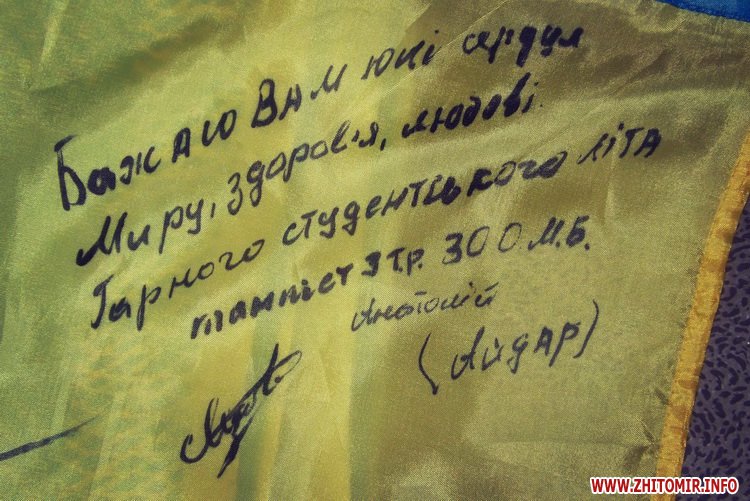 Бажаю Вам юні друзі
Миру, здоров'я, любові.
Гарного студентського літа
танкіст 3 т.р. 300 М.Б.
Анатолій
(Айдар)
WWW.ZHITOMIR.INFO